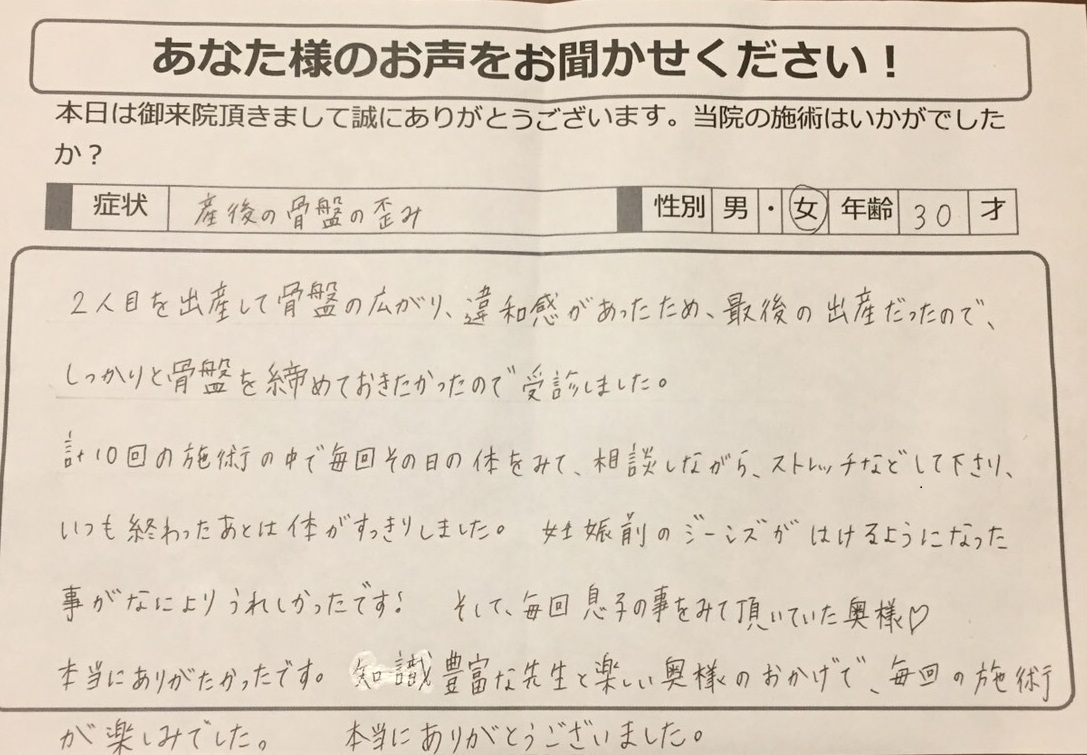 あなた様のお声をお聞かせください！
本日は御来院頂きまして誠にありがとうございます。当院の施術はいかがでした
か？
症状 産後の骨盤の歪み 性別 男・女 年齢 30 才
2人目を出産して骨盤の広がり、違和感があったため、最後の出産だったので、
しっかりと骨盤を締めておきたかったので受診しました。
計10回の施術の中で毎回その日の体をみて、相談しながら、ストレッチなどして下さり、
いつも終わったあとは体がすっきりしました。 妊娠前のジーンズがはけるようになった
事がなによりうれしかったです！ そして、毎回息子の事をみて頂いていた奥様♡
本当にありがたかったです。 知識豊富な先生と楽しい奥様のおかげで、毎回の施術
が楽しみでした。 本当にありがとうございました。